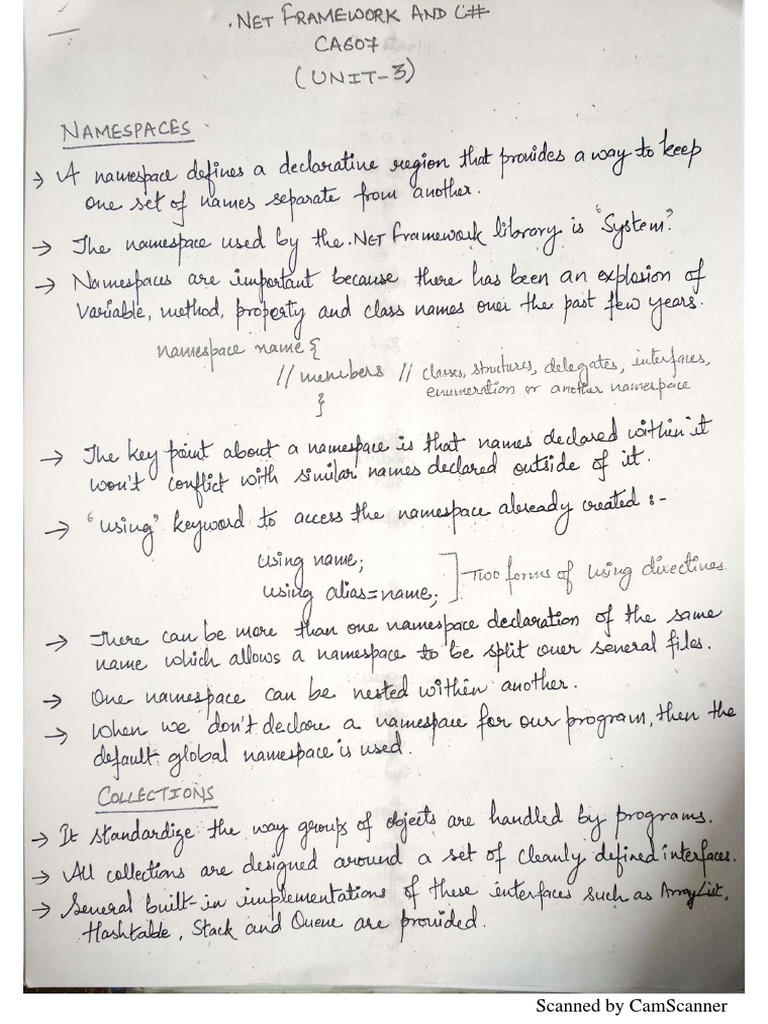 .NET FRAMEWORK AND C#
CA607
(UNIT-3)
NAMESPACES
→ A namespace defines a declarative region that provides a way to keep
one set of names separate from another.
→ The namespace used by the .NET Framework library is "System".
→ Namespaces are important because there has been an explosion of
variable, method, property and class names over the past few years.
namespace name {
// members // classes, structures, delegates, interfaces,
enumeration or another namespace
}
→ The key point about a namespace is that names declared within it
won't conflict with similar names declared outside of it.
→ "using" keyword to access the namespace already created :-
using name;
using alias=name; ] Two forms of using directives.
→ There can be more than one namespace declaration of the same
name which allows a namespace to be split over several files.
→ One namespace can be nested within another.
→ When we don't declare a namespace for our program, then the
default global namespace is used.
COLLECTIONS
→ It standardize the way groups of objects are handled by programs.
→ All collections are designed around a set of cleanly defined interfaces.
→ Several built-in implementations of these interfaces such as ArrayList,
Hashtable, Stack and Queue are provided.
Scanned by CamScanner